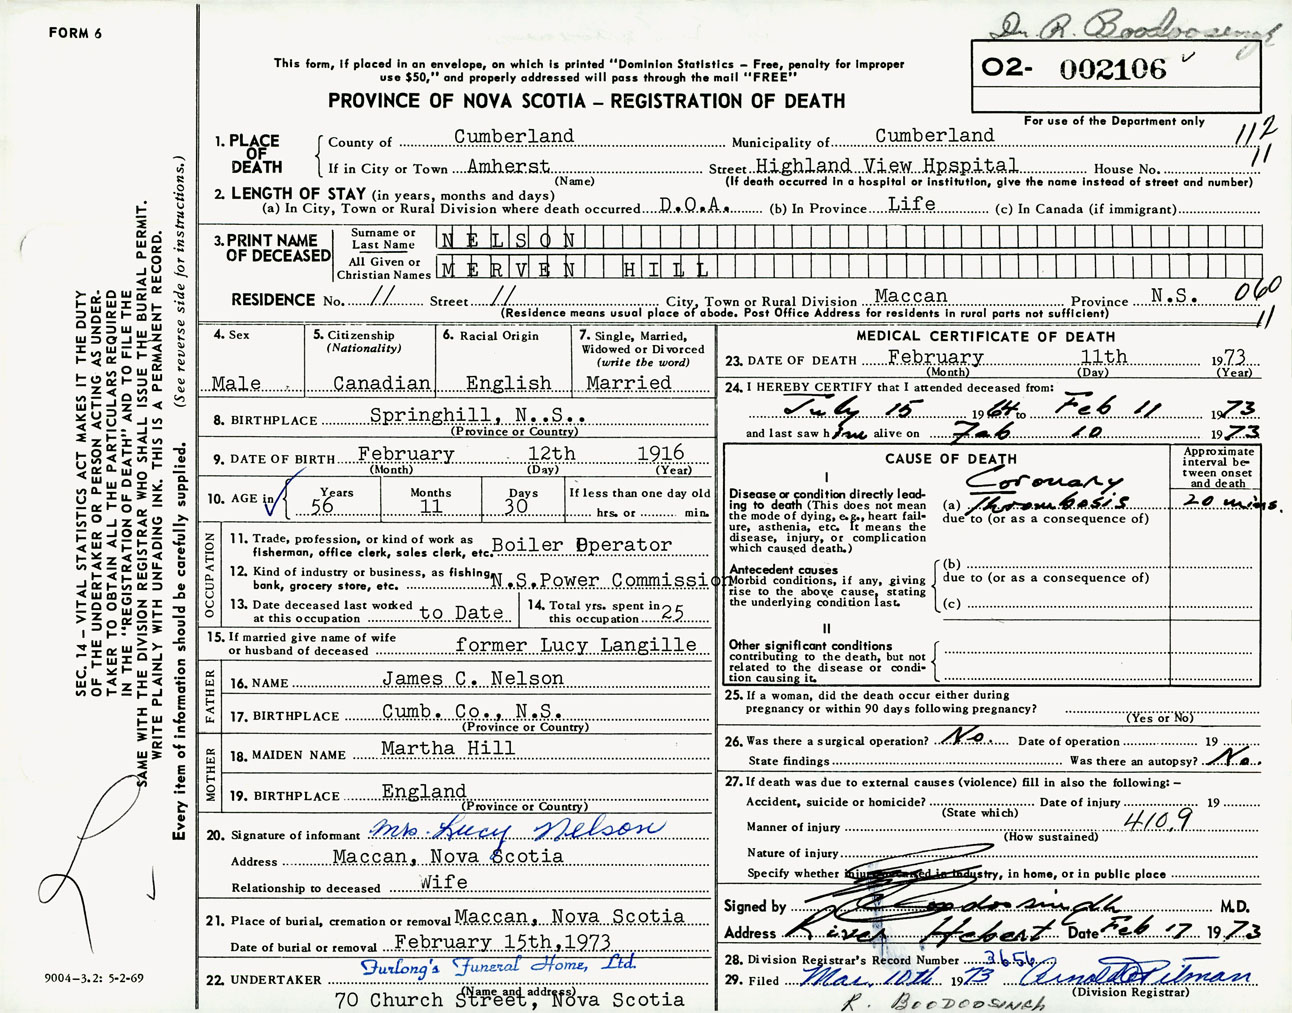 FORM 6
Dr. R. Boodoosingh
This form, if placed in an envelope, on which is printed "Dominion Statistics – Free, penalty for improper
use $50," and properly addressed will pass through the mail "FREE"
O2- 002106
PROVINCE OF NOVA SCOTIA – REGISTRATION OF DEATH
For use of the Department only
1. PLACE OF DEATH
County of Cumberland Municipality of Cumberland 112
If in City or Town Amherst Street Highland View Hpspital House No. 11
(Name) (If death occurred in a hospital or institution, give the name instead of street and number)
2. LENGTH OF STAY (in years, months and days)
(a) In City, Town or Rural Division where death occurred D.O.A. (b) In Province Life (c) In Canada (if immigrant)
3. PRINT NAME OF DECEASED
Surname or Last Name NELSON
All Given or Christian Names MERVEN HILL
RESIDENCE No. // Street // City, Town or Rural Division Maccan Province N.S. 060
(Residence means usual place of abode. Post Office Address for residents in rural parts not sufficient) 11
4. Sex
Male
5. Citizenship
(Nationality)
Canadian
6. Racial Origin
English
7. Single, Married,
Widowed or Divorced
(write the word)
Married
8. BIRTHPLACE Springhill, N..S..
(Province or Country)
9. DATE OF BIRTH February 12th 1916
(Month) (Day) (Year)
10. AGE in
Years Months Days If less than one day old
56 11 30 hrs. or min.
OCCUPATION
11. Trade, profession, or kind of work as
fisherman, office clerk, sales clerk, etc. Boiler Operator
12. Kind of industry or business, as fishing,
bank, grocery store, etc. N.S.Power Commission
13. Date deceased last worked
at this occupation to Date
14. Total yrs. spent in
this occupation 25
15. If married give name of wife
or husband of deceased former Lucy Langille
FATHER
16. NAME James C. Nelson
17. BIRTHPLACE Cumb. Co., N.S.
(Province or Country)
MOTHER
18. MAIDEN NAME Martha Hill
19. BIRTHPLACE England
(Province or Country)
20. Signature of informant Mrs. Lucy Nelson
Address Maccan, Nova Scotia
Relationship to deceased Wife
21. Place of burial, cremation or removal Maccan, Nova Scotia
Date of burial or removal February 15th,1973
22. UNDERTAKER Furlong's Funeral Home, Ltd.
(Name and address)
70 Church Street, Nova Scotia
MEDICAL CERTIFICATE OF DEATH
23. DATE OF DEATH February 11th 1973
(Month) (Day) (Year)
24. I HEREBY CERTIFY that I attended deceased from:
July 15 1964 to Feb 11 1973
and last saw him alive on Feb 10 1973
CAUSE OF DEATH
Approximate
interval be-
tween onset
and death
I
Disease or condition directly lead-
ing to death (This does not mean
the mode of dying, e.g., heart fail-
ure, asthenia, etc. It means the
disease, injury, or complication
which caused death.)
Coronary
(a) Thrombosis 20 mins.
due to (or as a consequence of)
Antecedent causes
Morbid conditions, if any, giving
rise to the above cause, stating
the underlying condition last.
(b)
due to (or as a consequence of)
(c)
II
Other significant conditions
contributing to the death, but not
related to the disease or condi-
tion causing it.
25. If a woman, did the death occur either during
pregnancy or within 90 days following pregnancy?
(Yes or No)
26. Was there a surgical operation? No. Date of operation 19
State findings Was there an autopsy? No.
27. If death was due to external causes (violence) fill in also the following: –
Accident, suicide or homicide? Date of injury 19
(State which)
Manner of injury 410.9
(How sustained)
Nature of injury
Specify whether injury occurred in industry, in home, or in public place
Signed by Boodoosingh M.D.
Address River Hebert Date Feb 17 1973
28. Division Registrar's Record Number 3656
29. Filed Mar. 10th 1973 Arnold Pitman
(Division Registrar)
R. BOODOOSINGH
SEC. 14 – VITAL STATISTICS ACT MAKES IT THE DUTY
OF THE UNDERTAKER OR PERSON ACTING AS UNDER-
TAKER TO OBTAIN ALL THE PARTICULARS REQUIRED
IN THE "REGISTRATION OF DEATH" AND TO FILE THE
SAME WITH THE DIVISION REGISTRAR WHO SHALL ISSUE THE BURIAL PERMIT.
WRITE PLAINLY WITH UNFADING INK. THIS IS A PERMANENT RECORD.
Every item of information should be carefully supplied. (See reverse side for instructions.)
9004-3.2: 5-2-69